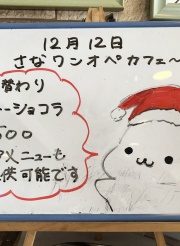 12月12日
さなワンオペカフェ～
替わり
ーショコラ
500
メニューも
供可能です